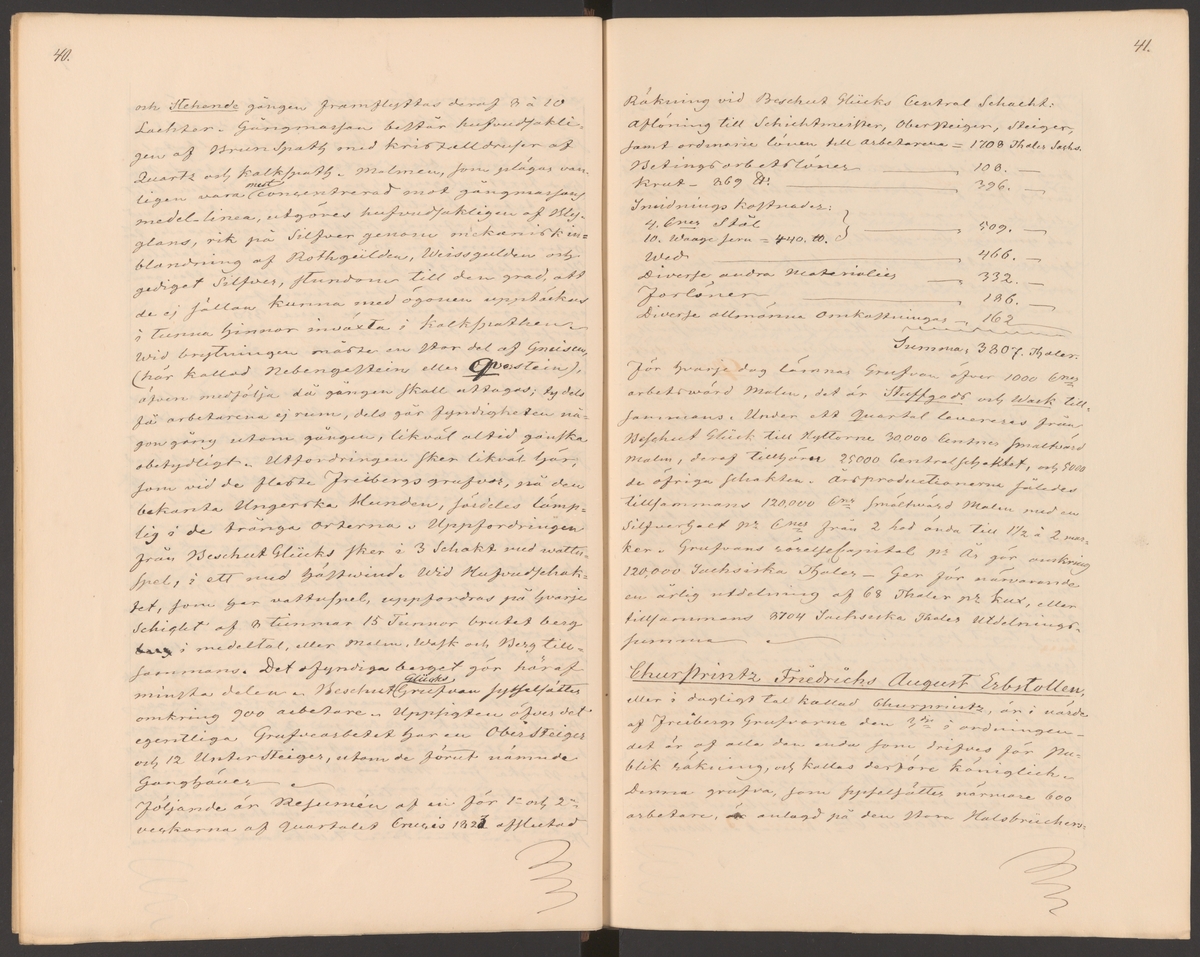 40.
och Stehande gången framflyttas deraf 8 à 10
Lachter. Gångmassan består hufvudsakli-
gen af Brunspath med kristalldruser af
Quartz och kalkspath. Malmen, som plägar van-
ligen vara mest concentrerad mot gångmassans
medel-linea, utgöres hufvudsakligen af Bly-
glans, rik på Silfver genom mekanisk in-
blandning af Rothgülden, Weissgulden och
gediget Silfver, stundom till den grad, att
de ej sällan kunna med ögonen upptäckas
i tunna hinnor inväxta i kalkspathen.
Wid brytningen måste en stor del af Gneisen,
(här kallad Nebengestein eller Qverstein),
äfven medfölja då gången skall uttagas; ty dels
få arbetarena ej rum, dels går fyndigheten nå-
gon gång utom gången, likväl altid ganska
obetydligt. Utfordringen sker likväl här,
som vid de flesta Freibergs grufvor, på den
bekanta Ungerska Hunden, särdeles lämp-
lig i de trånga orterna. Uppfordringen
från Beschut Glücks sker i 3 Schakt med vattu-
spel, i ett med hästwind. Wid Hufvudschak-
tet, som har vattuspel, uppfordras på hvarje
Schigt af 8 timmar 15 Tunnor brutet berg
i medeltal, eller Malm, Wask och Berg till-
sammans. Det ofyndiga berget gör häraf
minsta delen. Beschut Glücks Grufvan sysselsätter
omkring 900 arbetare. Uppsigten öfver det
egentliga Grufvearbetet har en Obersteiger
och 12 Untersteiger, utom de förut nämnde
Ganghäuer
Följande är Resumén af en för 1a och 2a
veckorna af Quartalet Crucis 1823 afslutad
41.
Räkning vid Beschut Glücks Central Schacht:
Aflöning till Schichtmeister, Obersteiger, Steiger,
samt ordinarie löner till arbetarena = 1708 Thaler Sachs.
Betingsarbetslöner — „ 108. —
Krut – 869 ℔. — „ 396. —
Smidnings kostnader:
4. Cner Stål
10. Waage Jern = 440. ℔. } — „ 509. —
Wed — „ 466. —
Diverse andra Materialier — „ 332. —
Forlöner — „ 186. —
Diverse allmänna Omkostningar „ 162
Summa, 3807. Thaler.
För hvarje dag lämnas Grufvan öfver 1000 Cner
arbetswärd Malm, det är Stuffgods och Wask till-
sammans. Under ett Quartal levereras från
Beschut Glück till Hyttorne 30,000 Centner smältvärd
Malm, deraf tillhörer 25000 Centralschaktet, och 5000
de öfriga schakten. Årsproductionerna således
tillsammans 120,000 Cner Smältvärd Malm med en
Silfverhalt pr Cner från 2 lod ända till 1½ à 2 mar-
ker. Grufvans rörelseCapital pr År gör omkring
120,000 Sachsiska Thaler – Ger för närvarande
en årlig utdelning af 68 Thaler pr kux, eller
tillsammans 8704 Sachsiska Thaler Utdelnings-
summa
Churprintz Friedrichs August Erbstollen,
eller i dagligt tal kallad Churprintz, är i värde
af Freibergs Grufvorne den 3die i ordningen –
det är af alla den enda som drifves för Pu-
blik räkning, och kallas derföre königlich.
Denna grufva, som sysselsätter närmare 600
arbetare, är anlagd på den stora Halsbrückers-